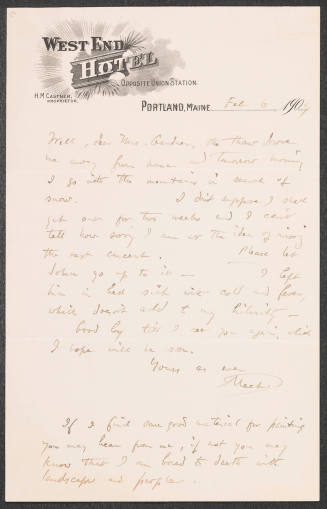 WEST END
HOTEL
OPPOSITE UNION STATION.
H. M. CASTNER,
PROPRIETOR.
PORTLAND, MAINE. Feb 6 1904
Well, dear Mrs. Gardner, the thaw drove
me away from home and tomorrow morning
I go into the mountains in search of
snow. I don't suppose I shall
get over for two weeks and I can't
tell how sorry I am at the idea of missing
the next concert. Please let
John go up to it — I left
him in bed sick with cold and fever,
which doesn't add to my hilarity —
Good by till I see you again, which
I hope will be soon.
Yours as ever
If I find some good material for painting
you may hear from me, if not you may
know that I am bored to death with
landscape and people.